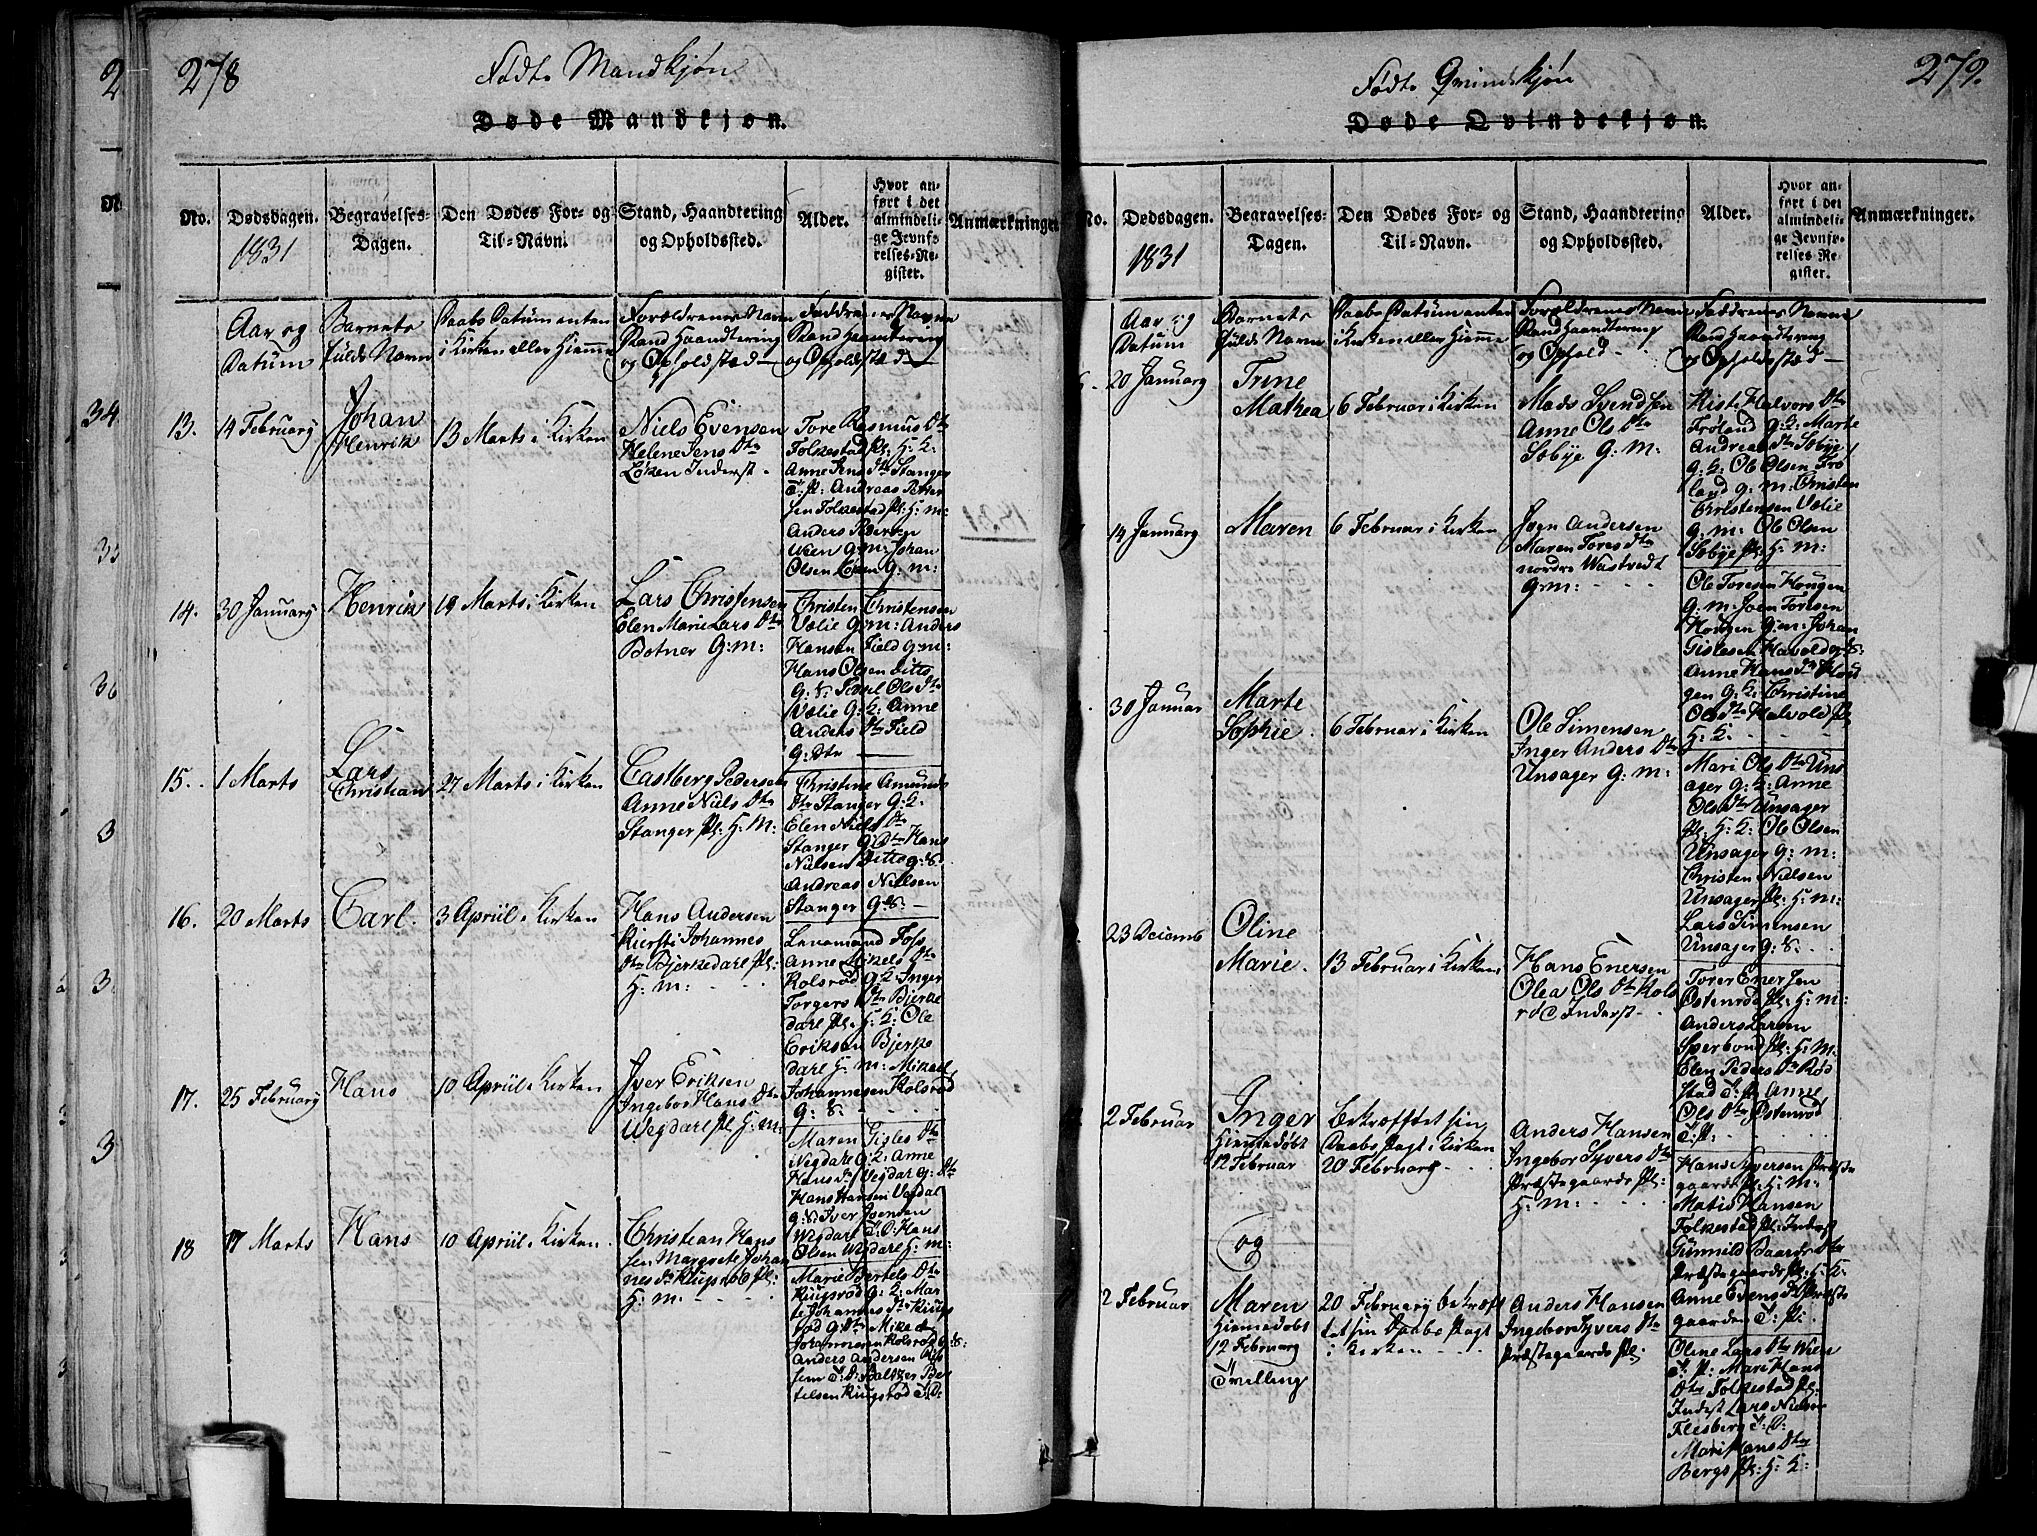 278
Fødte Mandkjøn
Døde Mandkjøn.
No.
Dødsdagen.
1831
Begravelses-
Dagen.
Den Dødes For- og
Til-Navn.
Stand, Haandtering
og Opholdssted.
Alder.
Hvor an-
ført i det
almindeli-
ge Jevnfø-
relses-Re-
gister.
Anmærkninger
Aar og
Datum
Barnets
fulde Navn
Daabs Datum enten
i Kirken eller Hiemme
Forældrenes Navn
Stand Haandtering
og Opholdsted
Faddrenes Navne
Stand Haandtering
og Opholdsted
13.
14 February
Johan
Henrik
13 Marts i Kirken
Niels Evensen
Helene Jens Dtr
Løken Inderst
Tore Rasmus Dtr
Folkestad Pl: H: K:
Anne Jens Dtr Stanger
T: P: Andreas Petter
sen Folkestad Pl: H: m:
Anders Pedersen
Wien G: m: Johan
Olsen Løken G: m:
14.
30 January
Henrik
19 Marts i Kirken
Lars Christensen
Elen Marie Lars Dtr
Botner G: m:
Christen Christensen
Vælie G: m: Anders
Hansen Field G: m:
Hans Olsen ditto
G: S: Ols Dtr
Vælie G: K: Anne
Anders Dtr Field
G: Dtr
15.
1 Marts
Lars
Christian
27 Marts i Kirken
Castberg Pedersen
Anne Niels Dtr
Stanger Pl: H: M:
Christine Amunds
Dtr Stanger G: K:
Elen Niels Dtr
Stanger G: Dtr Hans
Nielsen Ditto G: S:
Andreas Nielsen
Stanger G: S:
16.
20 Marts
Carl.
3 Apriil i Kirken
Hans Andersen
Kiersti Johannes
Dtr Bjerkedarl Pl:
H: m:
Lensmand Foss
Anne Mikels Dtr
Kolsrød G: K: Inger
Torgers Dtr Bjerke
darl Pl: H: K: Ole
Eriksen Bjerke
darl H: m: Mikael
Johannesen Kolsrød
G: S:
17.
25 February
Hans
10 Apriil i Kirken
Iver Eriksen
Ingebor Hans Dtr
Wegdarl Pl: H: m:
Maren Gisles Dtr
Wegdarl G: K: Anne
Hans Dtr Vegdarl G: Dtr
Hans Hansen Vegdal
G: S: Iver
Wegdarl T: D: Hans
Olsen Wegdarl H: m:
18
17 Marts
Hans
10 Apriil i Kirken.
Christian Hans
sen Margrete Johan
nes Dtr Kiugsrød Pl:
H: m:
Marie Bertels Dtr
Kiugsrød G: K: Mar
te Johannes Dtr Kiugs
rød G: Dtr Mikael
Johannesen Kolsrød G: S:
Anders Andersen
sem T: D: Baltzer Ber
telsen Kiugsrød T: D:
279.
Fødte Qvindekjøn
Døde Qvindekjøn.
No.
Dødsdagen.
1831
Begravelses-
Dagen.
Den Dødes For- og
Til-Navn.
Stand, Haandtering
og Opholdssted.
Alder.
Hvor an-
ført i det
almindeli-
ge Jevnfø-
relses-Re-
gister.
Anmærkninger.
Aar og
Datum
Barnets
fulde Navn
Daabs Datum enten
i Kirken eller Hiemme
Forældrenes Navn
Stand Haandtering
og Ophold
Faddrenes Navne
Stand Haandtering
og Opholdsted
20 January
Trine
Mathea
6 Februar i Kirken
Mads Svendsen
Anne Ols Dtr
Sobye G: M:
Kisti Halvors Dtr
Froland G: K: Marte
Andreas Dtr Sobye
G: K: Ole Olsen Fro
land G: m: Christen
Christensen Vælie
G: m: Ole Olsen
Sobye Pl: H: m:
14 January
Maren
6 Februar i Kirken
Joen Andersen
Maren Tores Dtr
nordre Wastvedt
G: m:
Ole Toresen Hougen
G: m: Joen Toresen
Hougen G: m: Johan
Gislesen Havold G: S:
Anne Hans Dtr Hou
gen G: K: Christine
Ols Dtr Halvold Pl:
H: K:
30 Januar
Marte
Sophie.
6 Februar i Kirken
Ole Simensen
Inger Anders Dtr
Unsager G: m:
Mari Ols Dtr Uns
ager G: K: Anne
Ols Dtr Unsager
Pl: H: K: Ole Olsen
Unsager G: m:
Christen Nielsen
Unsager Pl: H: m:
Lars Simensen
Unsager G: S:
23 Decemb
Oline
Marie.
13 Februar i Kirken
Hans Enersen
Olea Ols Dtr Kols
rød Inderst
Torer Enersen
Østenrød Pl: H: m:
Anders Larsen
Sperbond Pl: H: M:
Elen Peders Dtr Rød
stad T: P: Anne
Ols Dtr Østenrød
T: P:
2 Februar
Inger
Hiemedøbt
12 Februar
bekræfftet sin
Daabs Pagt i Kirken
20 February
Anders Hansen
Ingebor Syvers Dtr
Præstegaards Pl:
H: m:
Hans Syversen Præste
gaards Pl: H: M:
Matis Hansen
Folkestad Pl: Inderst
Gunnild Baards Dtr
Præstegaards Pl: H: K:
Anne Evens Dtr Præste
gaarden T: P:
og
2 Februar
Maren
Hiemedøbt
12 February
Tvilling
20 February bekræft
tet sin Daabs Pagt
i Kirken
Anders Hansen
Ingebor Syvers Dtr
Præstegaards Pl:
Oline Lars Dtr Wien
T: P: Mari Hans
Dtr Folkestad Pl:
Inderst Lars Nielsen
Flesberg T: D:
Mari Hans Dtr
Bergs Pl: H: K: